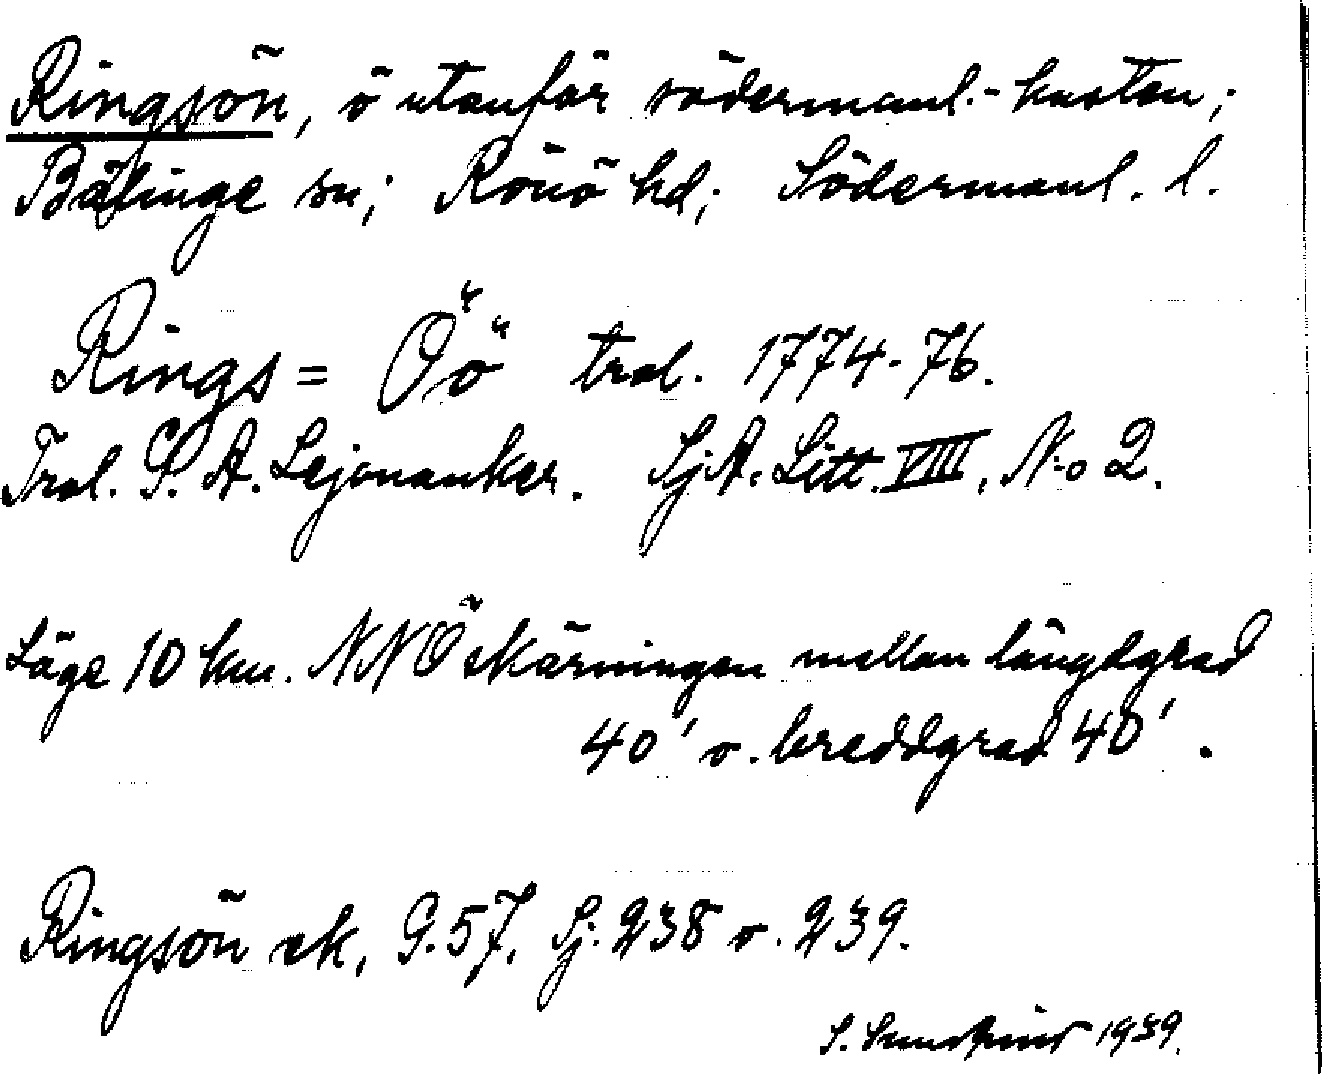 Ringsön, ö utanför södermanl.-kusten;
Bälinge sn; Rönö hd; Södermanl. l.
Rings= Öö trol. 1774-76.
Trol. S. A. Lejonanker. SjA. Litt. VIII, No 2.
Läge 10 km. NNÖ skärningen mellan längdgrad
40' o. breddgrad 40'.
Ringsön ek, G. 57, Sj. 238 o. 239.
S. 1939.